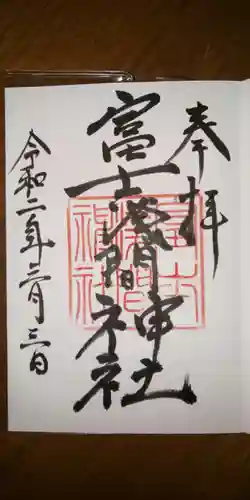 奉拝
富士浅間神社
令和二年二月三日